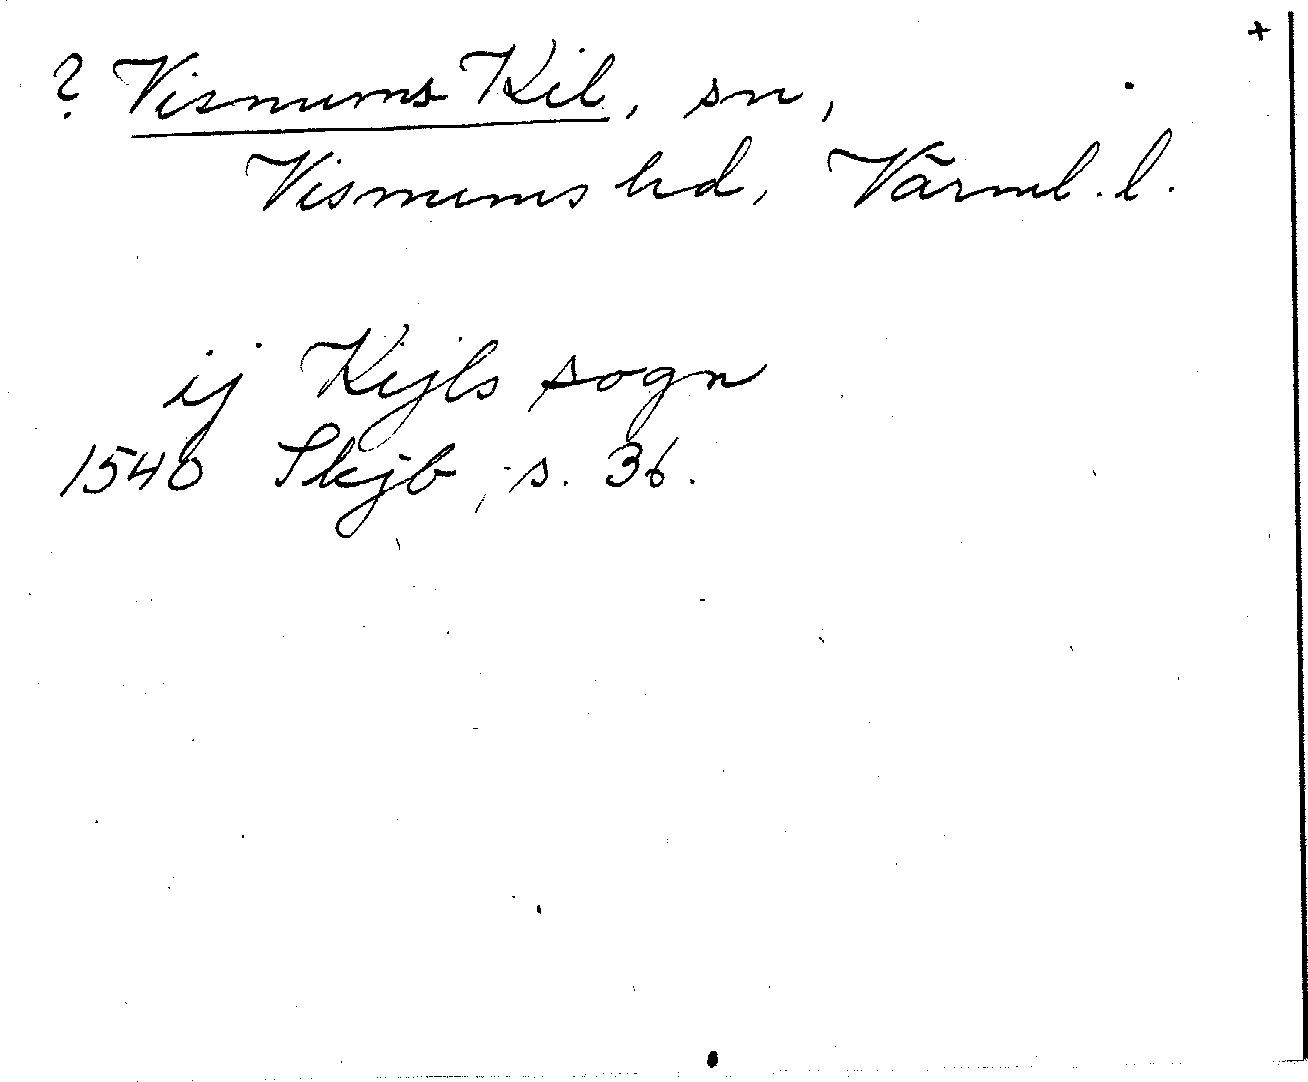 +
? Visnums Kil, sn,
Visnums hd, Värml. l.
ij Kijls sogn
1540 Skjb, s. 36.